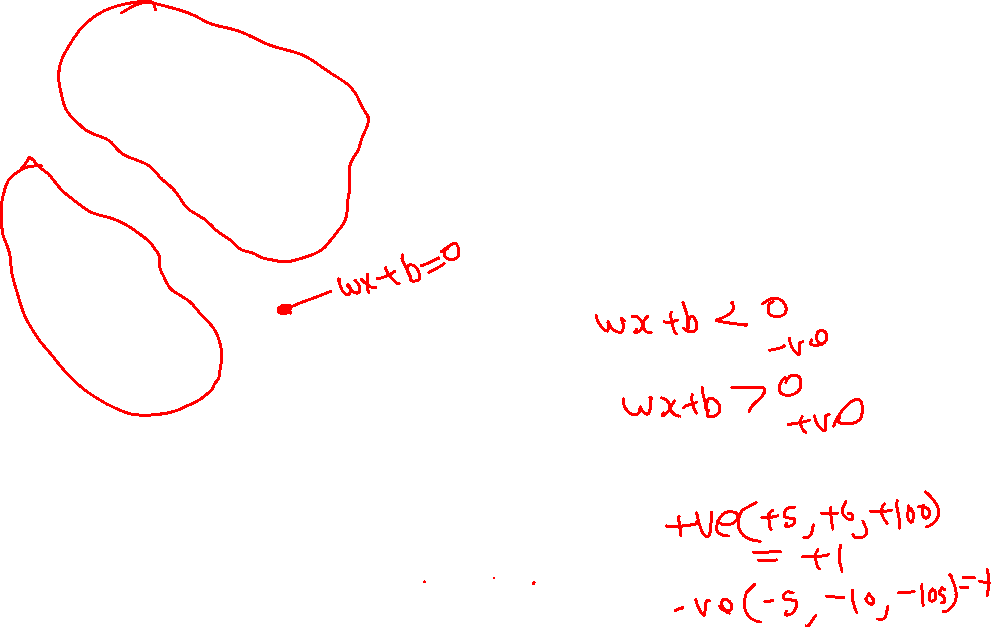 wx+b=0
wx+b < 0
-ve
wx+b > 0
+ve
+ve(+5, +6, +100)
= +1
-ve(-5, -10, -105)=-1